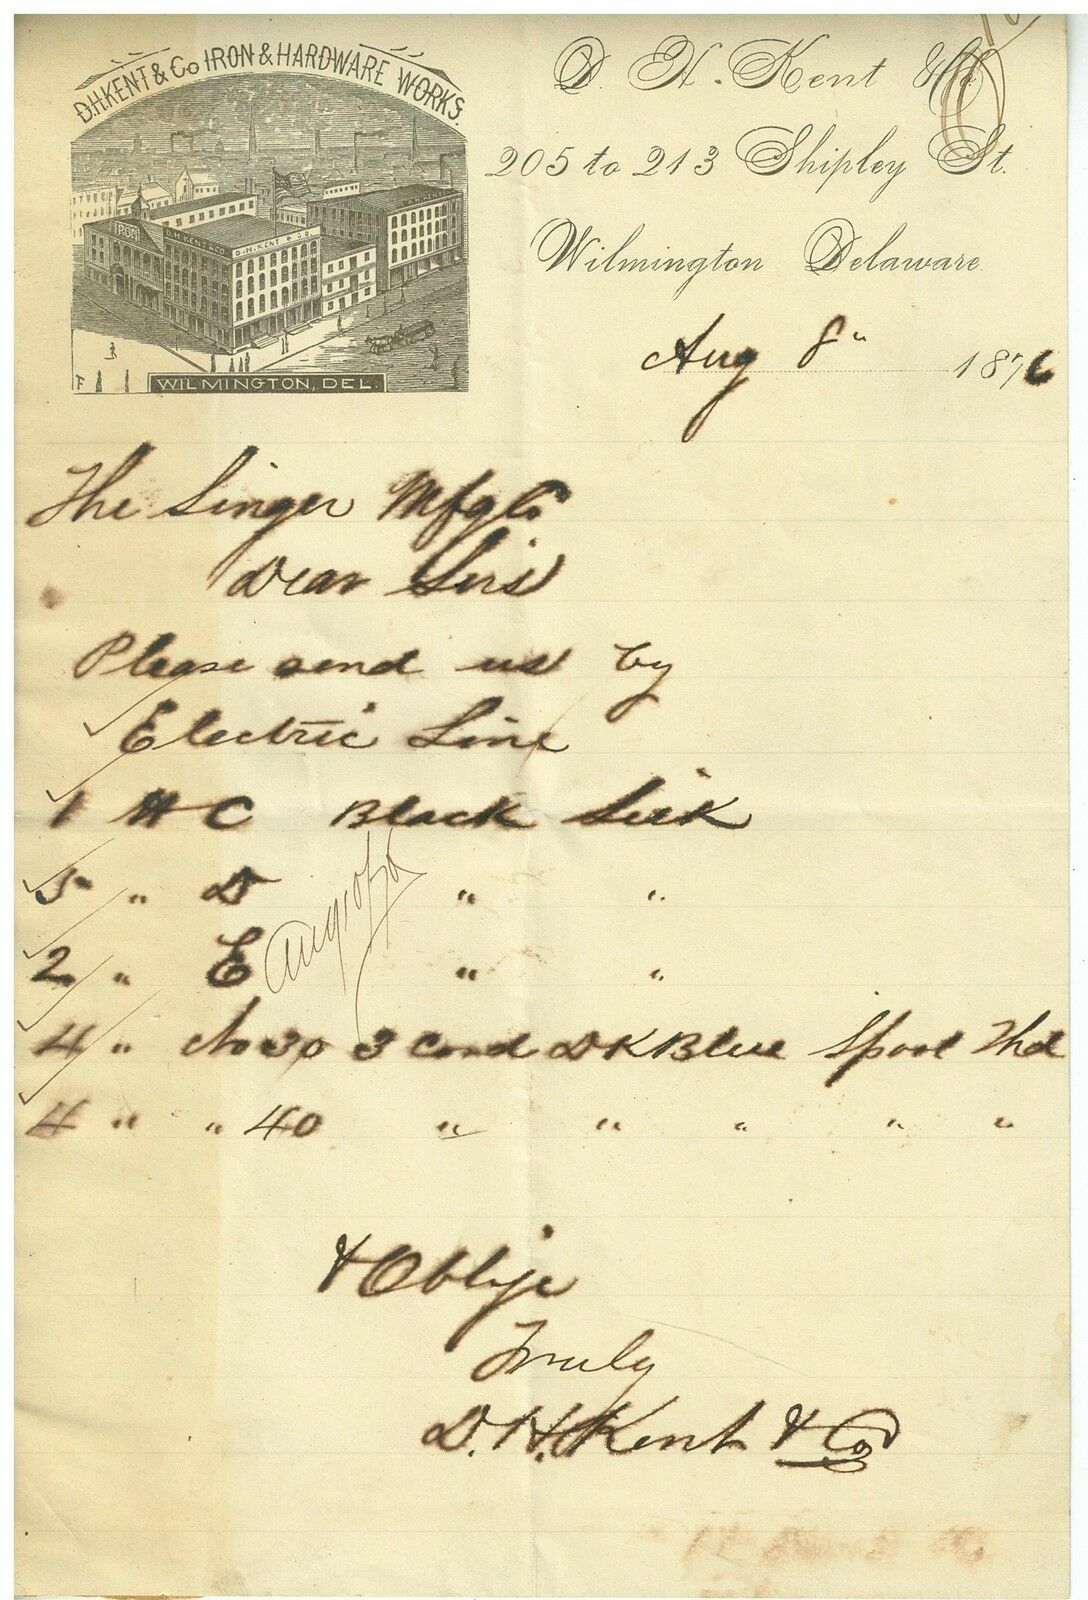 D.H.KENT & Co IRON & HARDWARE WORKS.
IRON
D.H.KENT & CO.
D.H.KENT & CO.
WILMINGTON, DEL.
D. H. Kent & Co.
205 to 213 Shipley St.
Wilmington Delaware.
Aug 8" 1876
The Singer Mfg Co
Dear Sirs
Please send us by
Electric Line
1 H C Black Silk
5 " D " "
2 " E " "
Aug 10/76
4 " No 30 3 Cord DK Blue Spool Thd
4 " " 40 " " " " "
& Oblige
Truly
D. H. Kent & Co